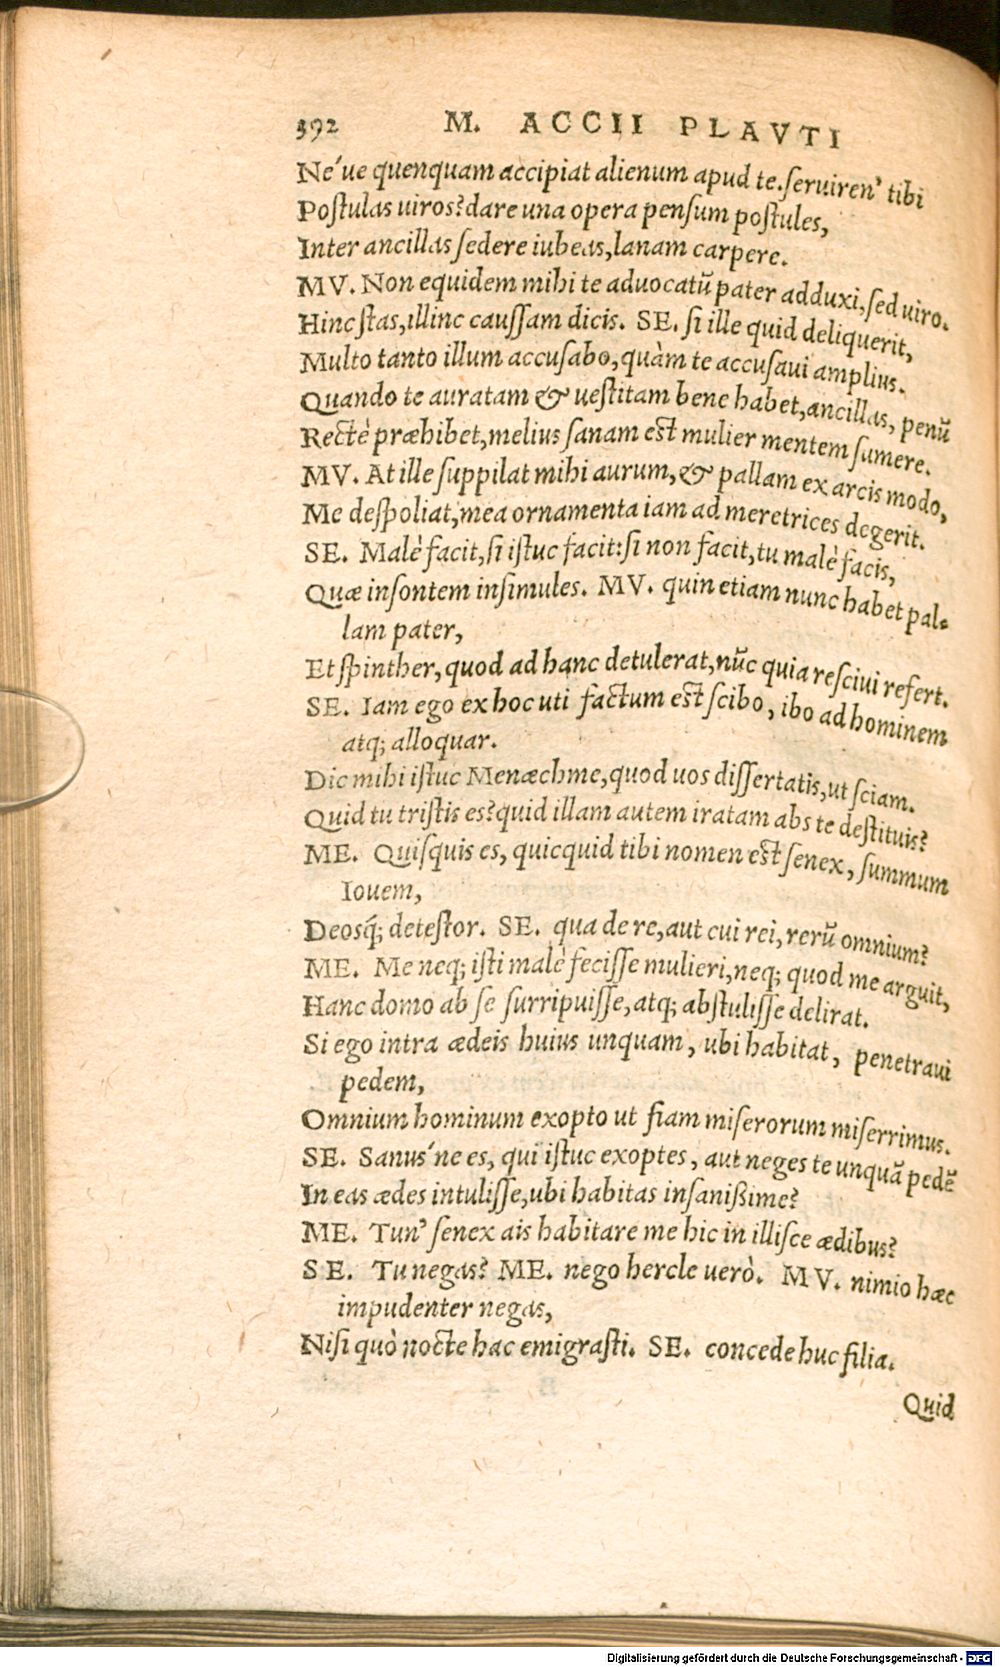 392 M. ACCII PLAVTI
Ne´ue quenquam accipiat alienum apud te.seruiren’ tibi
Postulas uiros?dare una opera pensum postules,
Inter ancillas sedere iubeas,lanam carpere.
MV. Non equidem mihi te aduocatū pater adduxi,sed uiro.
Hinc stas,illinc caussam dicis. SE. si ille quid deliquerit,
Multo tanto illum accusabo,quàm te accusaui amplius.
Quando te auratam & uestitam bene habet,ancillas, penū
Rectè præhibet,melius sanam est mulier mentem sumere.
MV. At ille suppilat mihi aurum,& pallam ex arcis modo,
Me despoliat,mea ornamenta iam ad meretrices degerit.
SE. Malè facit,si istuc facit:si non facit,tu malè facis,
Quæ insontem insimules. MV. quin etiam nunc habet pal-
lam pater,
Et spinther,quod ad hanc detulerat,nūc quia resciui refert.
SE. Iam ego ex hoc uti factum est scibo, ibo ad hominem
atq; alloquar.
Dic mihi istuc Menæchme,quod uos dissertatis,ut sciam.
Quid tu tristis es?quid illam autem iratam abs te destituis?
ME. Quisquis es, quicquid tibi nomen est senex, summum
Iouem,
Deosq́; detestor. SE. qua de re,aut cui rei,rerū omnium?
ME. Me neq; isti malè fecisse mulieri,neq; quod me arguit,
Hanc domo ab se surripuisse,atq; abstulisse delirat.
Si ego intra ædeis huius unquam, ubi habitat, penetraui
pedem,
Omnium hominum exopto ut fiam miserorum miserrimus.
SE. Sanus´ne es, qui istuc exoptes, aut neges te unquā pedē
In eas ædes intulisse,ubi habitas insanißime?
ME. Tun’ senex ais habitare me hic in illisce ædibus?
SE. Tu negas? ME. nego hercle uerò. MV. nimio hæc
impudenter negas,
Nisi quò nocte hac emigrasti. SE. concede huc filia.
Quid
Digitalisierung gefördert durch die Deutsche Forschungsgemeinschaft - DFG